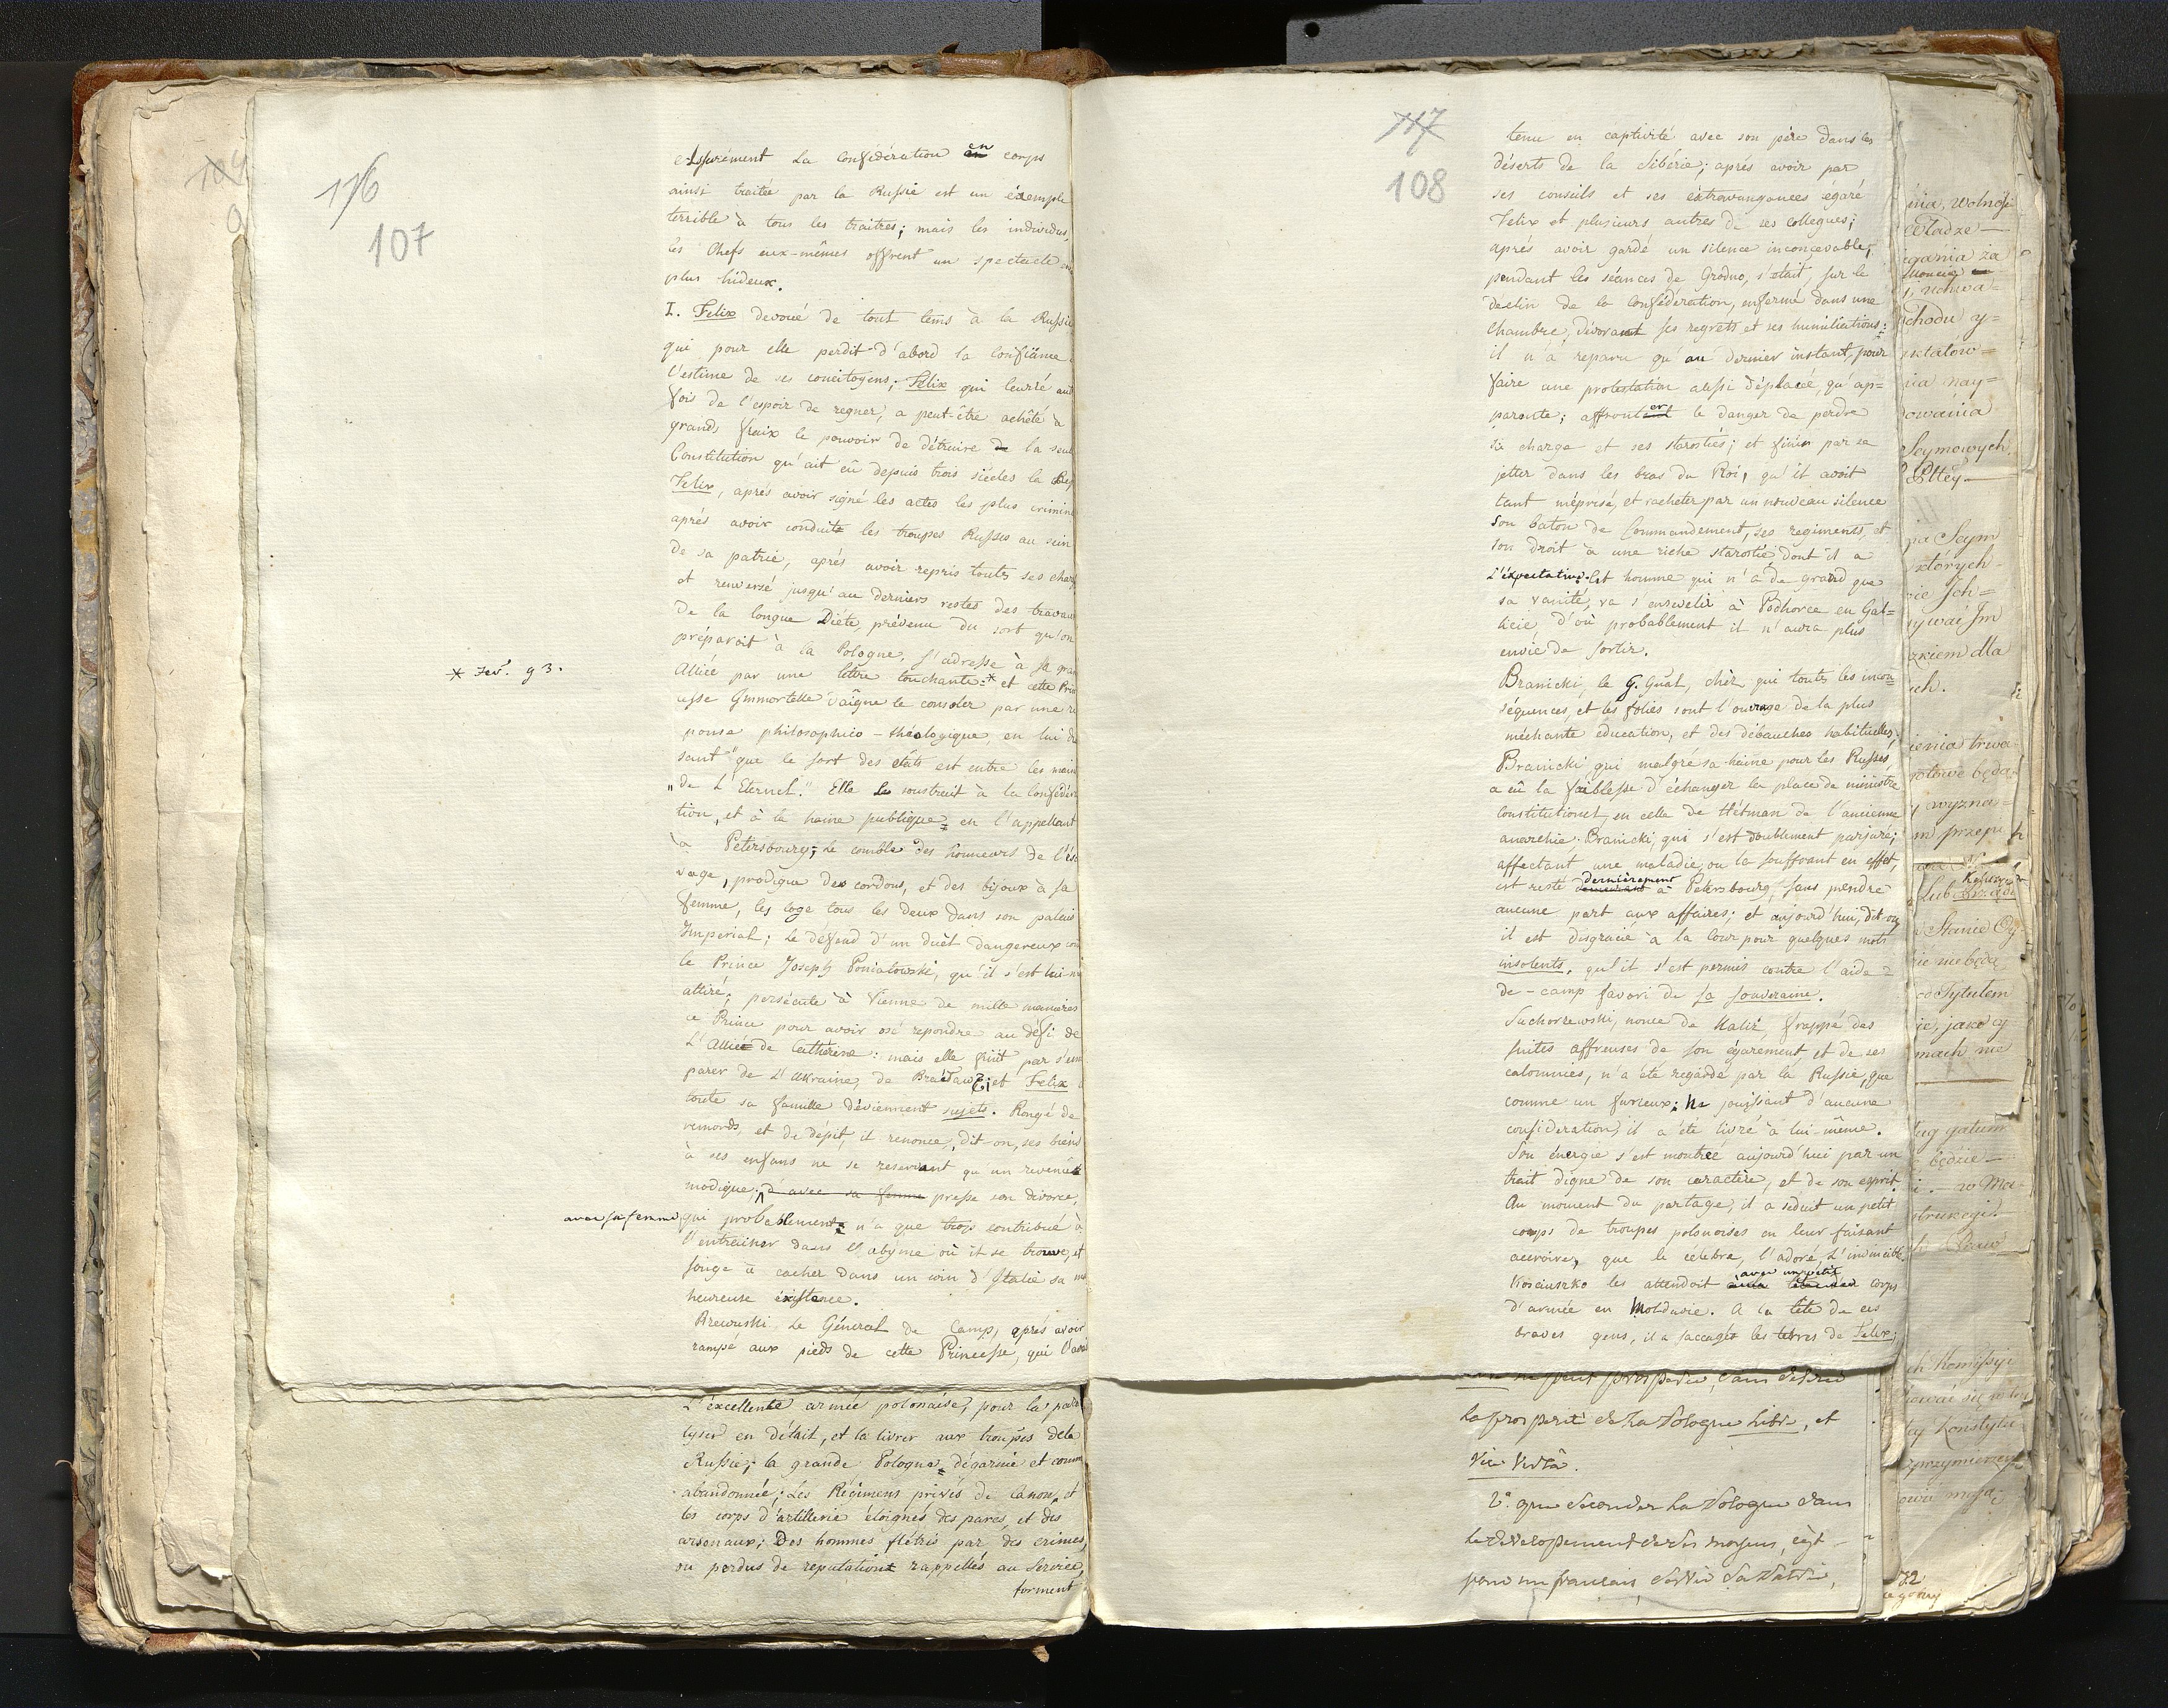 116
107
Assurément la Confédération en corps
ainsi traitée par la Russie est un éxemple
terrible à tous les traitres; mais les individus,
les Chefs eux-mêmes offrent un spectacle
plus hideux.
I. Felix devoué de tout tems à la Russie
qui pour elle perdit d'abord la confiânce
l'estime de ses concitoyens; Félix qui leurré
fois de l'espoir de regner, a peut-être achêté à
grands fraix le pouvoir de détruire de la
Constitution qu'ait eû depuis trois siécles la
Felix, aprés avoir signé les actes les plus
aprés avoir conduit les troupes Russes au sein
de sa patrie, aprés avoir repris toutes ses
et renversé jusqu'au derniers restes des
de la longue Diéte, prévenu du sort qu'on
préparoit à la Pologne, s'adresse à sa
Alliée par une lettre touchante:* et cette
* Fev. 93.
cesse Immortelle daîgne le consoler par une
ponse philosophico-théologique, en lui
sant "que le sort des états est entre les
„de L'Eternel." Elle le soustrait à la
tion, et à la haine publique en l'appellant
à Petersbourg; le comble des honneurs de
vage, prodigue des cordons, et des bijoux à sa
femme, les loge tous les deux dans son palais
Imperial; le défend d'un duèl dangereux
le Prince Joseph Poniatowski, qu'il s'est
attiré; persécute à Vienne de mille manieres
ce Prince pour avoir osé repondre au défi de
L'Alliée de Catherine: mais elle finit par
parer de l'Ukraine, de Bracław; et Felix
toute sa famille déviennent sujets. Rongé de
remords, et de dépit, il renonce, dit-on, ses biens
à ses enfans ne se reservant qu'un revenûe
modique; d'avec sa femme presse son divorce,
avec sa femme
qui probablement n'a que trop contribué à
l'entrainer dans l'abyme où il se trouve, et
songe à cacher dans un coin d'Italie sa
heureuse éxistence.
Rzewuski le Général de Camp, aprés avoir
rampé aux pieds de cette Princesse, qui
L'éxcellente armée polonaise, pour la
lyser en détail, et la livrer aux troupes dela
Russie; la grande Pologne dégarnie et
abandonnée; Les Régimens privés de canon, et
les corps d'artillerie éloignés des parcs, et des
arsenaux; Des hommes flétris par des crimes,
ou perdus de reputation rappellés au Service,
forment
117
108
tenu en captivité avec son pére dans les
déserts de la Sibérie; aprés avoir par
ses conseils et ses éxtravangances égaré
Felix et plusieurs autres de ses collegues;
aprés avoir gardé un silence inconcevable,
pendant les séances de Grodno, s'etait, sur le
declin de la Confédération, enfermé dans une
Chambre, dévorant ses regrets et ses humiliations:
il n'a reparu qu'au dernier instant, pour
faire une protestation aussi déplacée, qu'ap=
parente; affronter le danger de perdre
sa charge et ses starosties; et finir par se
jetter dans les bras du Roi, qu'il avoit
tant méprisé, et racheter par un nouveau silence
son baton de Commandement, ses regiments, et
son droit à une riche starostie dont il a
L'éxpectative. Cet homme qui n'a de grand que
sa vanité, va s'ensevelir à Podhorce en Gal=
licie, d'où probablement il n'aura plus
envie de sortir.
Branicki, le G. Gñal, chéz qui toutes les incon=
séquences, et les folies sont l'ouvrage de la plus
méchante éducation, et des débauches habituelles.
Branicki qui malgré sa haine pour les Russes,
a eû la faiblesse d'échanger la place de ministre
Constitutionel, en celle de Hétman de l'ancienne
anarchie. Branicki, qui s'est doublement parjuré;
affectant une maladie, ou la souffrant en effet,
est resté dernièrement à Petersbourg, sans prendre
aucune part aux affaires; et aujourd'hui, dit-on,
il est disgracié à la Cour pour quelques mots
insolents, qu'il s'est permis contre l'aide=
de-camp favori de sa souveraine.
Suchorzewski, nonce de Kalız, frappé des
suites affreuses de son égarement, et de ses
calomnies, n'a été regardé par la Russie, que
comme un furieux; Ne jouissant d'aucune
consideration, il a été livré à lui-même.
Son énergie s'est montrée aujourd'hui par un
trait digne de son caractère, et de son esprit.
Au moment du partage, il a séduit un petit
corps de troupes polonoises en leur faisant
accroire, que le célebre, l'adoré, L'invincible
Kosciuszko les attendoit avec un petit corps
d'armée en Moldavie. A la tête de ces
braves gens, il a saccagé les terres de Felix;
ne peut prosperer, sans
la prosperité de la Pologne Libre, et
Vice Versâ.
2°. que Seconder la Pologne dans
le développement de ses moyens, c'est
pour un français servir Sa Patrie,
Seymowych.
Seym
których
Stanie
Tytulem
będzie
72